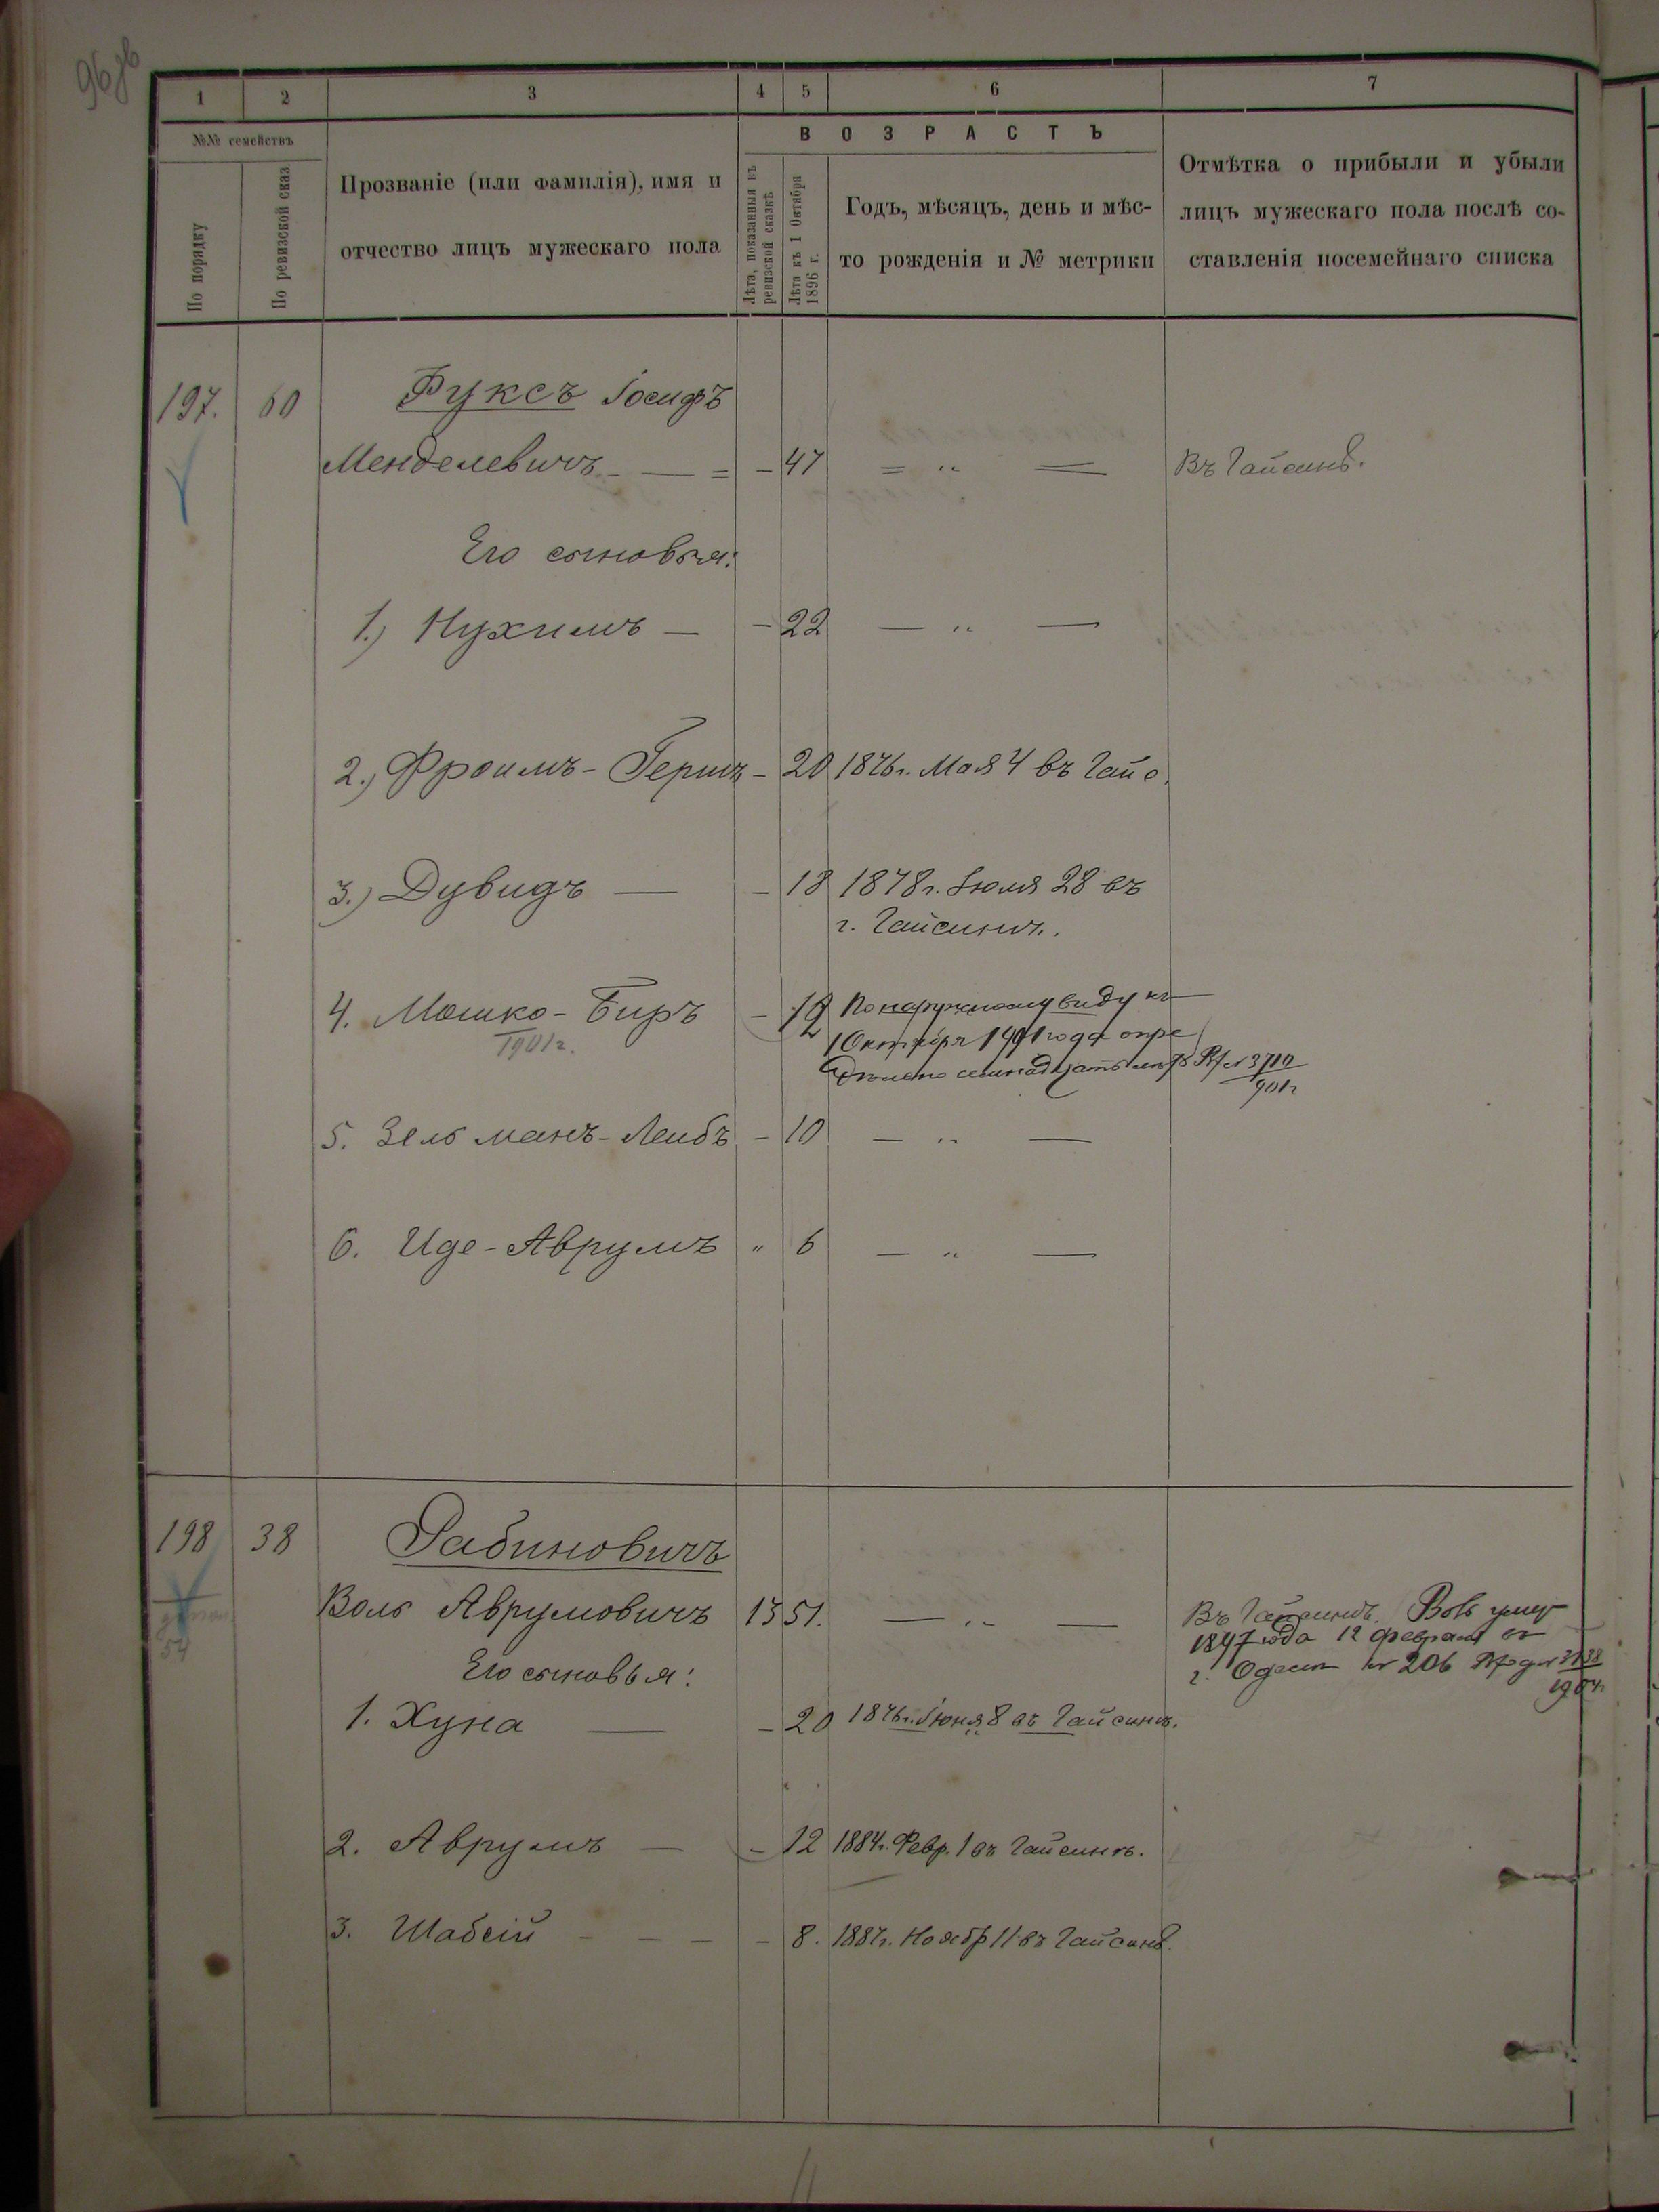 96 об
1 2 3 4 5 6 7
№№ семействъ
По порядку
По ревизской сказ
Прозваніе (или фамилія), имя и
отчество лицъ мужескаго пола
ВОЗРАСТЪ
Лѣта, показанныя въ
ревизской сказкѣ
Лѣта къ 1 Октября
1896 г.
Годъ, мѣсяцъ, день и мѣс-
то рожденія и № метрики
Отмѣтка о прибыли и убыли
лицъ мужескаго пола послѣ со-
ставленія посемейнаго списка
197. 60 Фуксъ Іосифъ
Менделевичъ — = - 47 = " = Въ Гайсинѣ.
Его сыновья:
1.) Нухимъ — - 22 — " —
2.) Фроимъ-Гершъ - 20 1876 г. Мая 4 въ Гайс.
3.) Дувидъ — - 18 1878 г. Іюля 28 въ
г. Гайсинѣ.
4. Мошко-Биръ - 12 По наружному виду къ
1901 г.
1 Октября 1901 года опре
дѣлено семнадцать лѣтъ № 3710
901 г
5. Зельманъ-Лейбъ - 10 — " —
6. Иде-Аврумъ " 6 — " —
198 38 Рабиновичъ
Воль Аврумовичъ 13 51. — " — Въ Гайсинѣ. Воль умер
1897 года 12 февраля въ
г. Одессѣ № 206 3138
1904
54
Его сыновья:
1. Хуна — - 20 1876 г. Іюня 8 въ Гайсинѣ.
2. Аврумъ — - 12 1884 г. Февр. 1 въ Гайсинѣ.
3. Шабсій - - - - 8. 1887 г. Ноябр 11 въ Гайсинѣ.